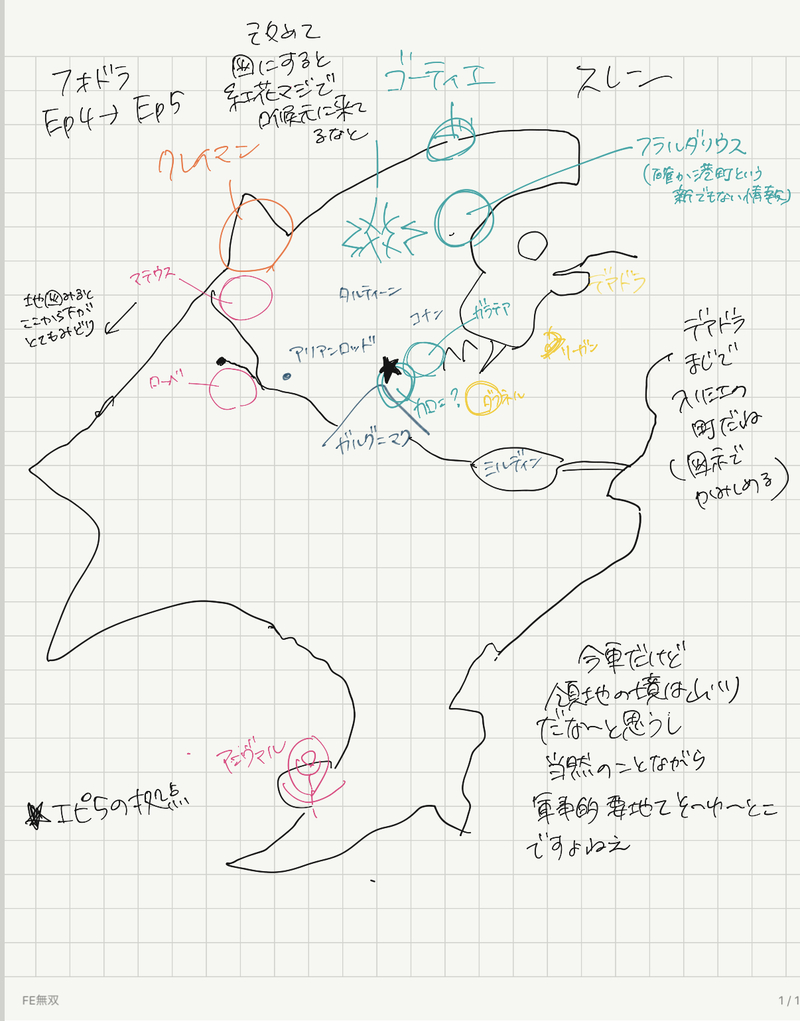 フォドラ
Ep4→Ep5
改めて
図にすると
紅花マジで
喉元に来て
るなと
ゴーティエ
スレーン
クレイマン
フラルダリウス
(確か港町という
訳でもない情報)
マテウス
地図みると
ここから下が
とてもみどり
タルティーン
コナン
ガラテア
デアドラ
リーガン
アリアンロッド
ローベ
カロン?
ダフネル
ガルグ=マク
ミルディン
デアドラ
まじで
入り江の
町だね
(図示で
かみしめる)
今更だけど
領地の境は山バリ
だな〜と思うし
当然のことながら
軍事的要地てそ〜ゆ〜とこ
ですよねえ
アミヴァル
★エピ5の拠点
FE無双
1/1